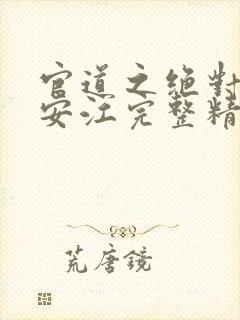 官道之绝对
安江完整精
荒唐镜